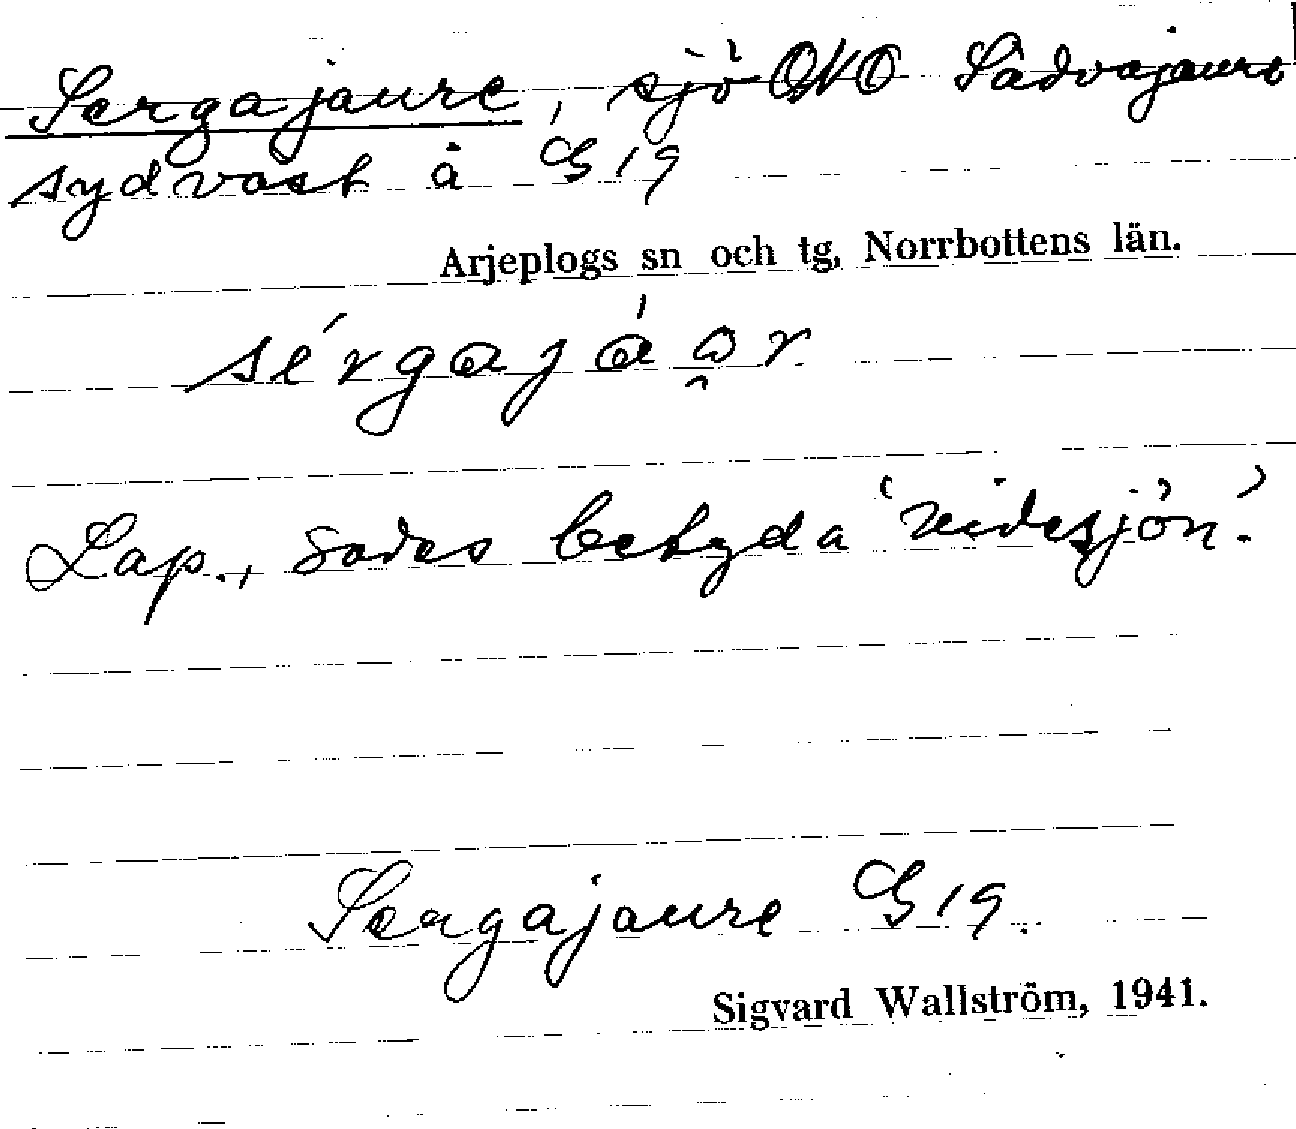 Sergajaure, sjö ONO Sädvajaure
sydväst å G 19
Arjeplogs sn och tg, Norrbottens län.
sérgajáɷr
Lap., sades betyda 'videsjön'.
Sergajaure G 19
Sigvard Wallström, 1941.